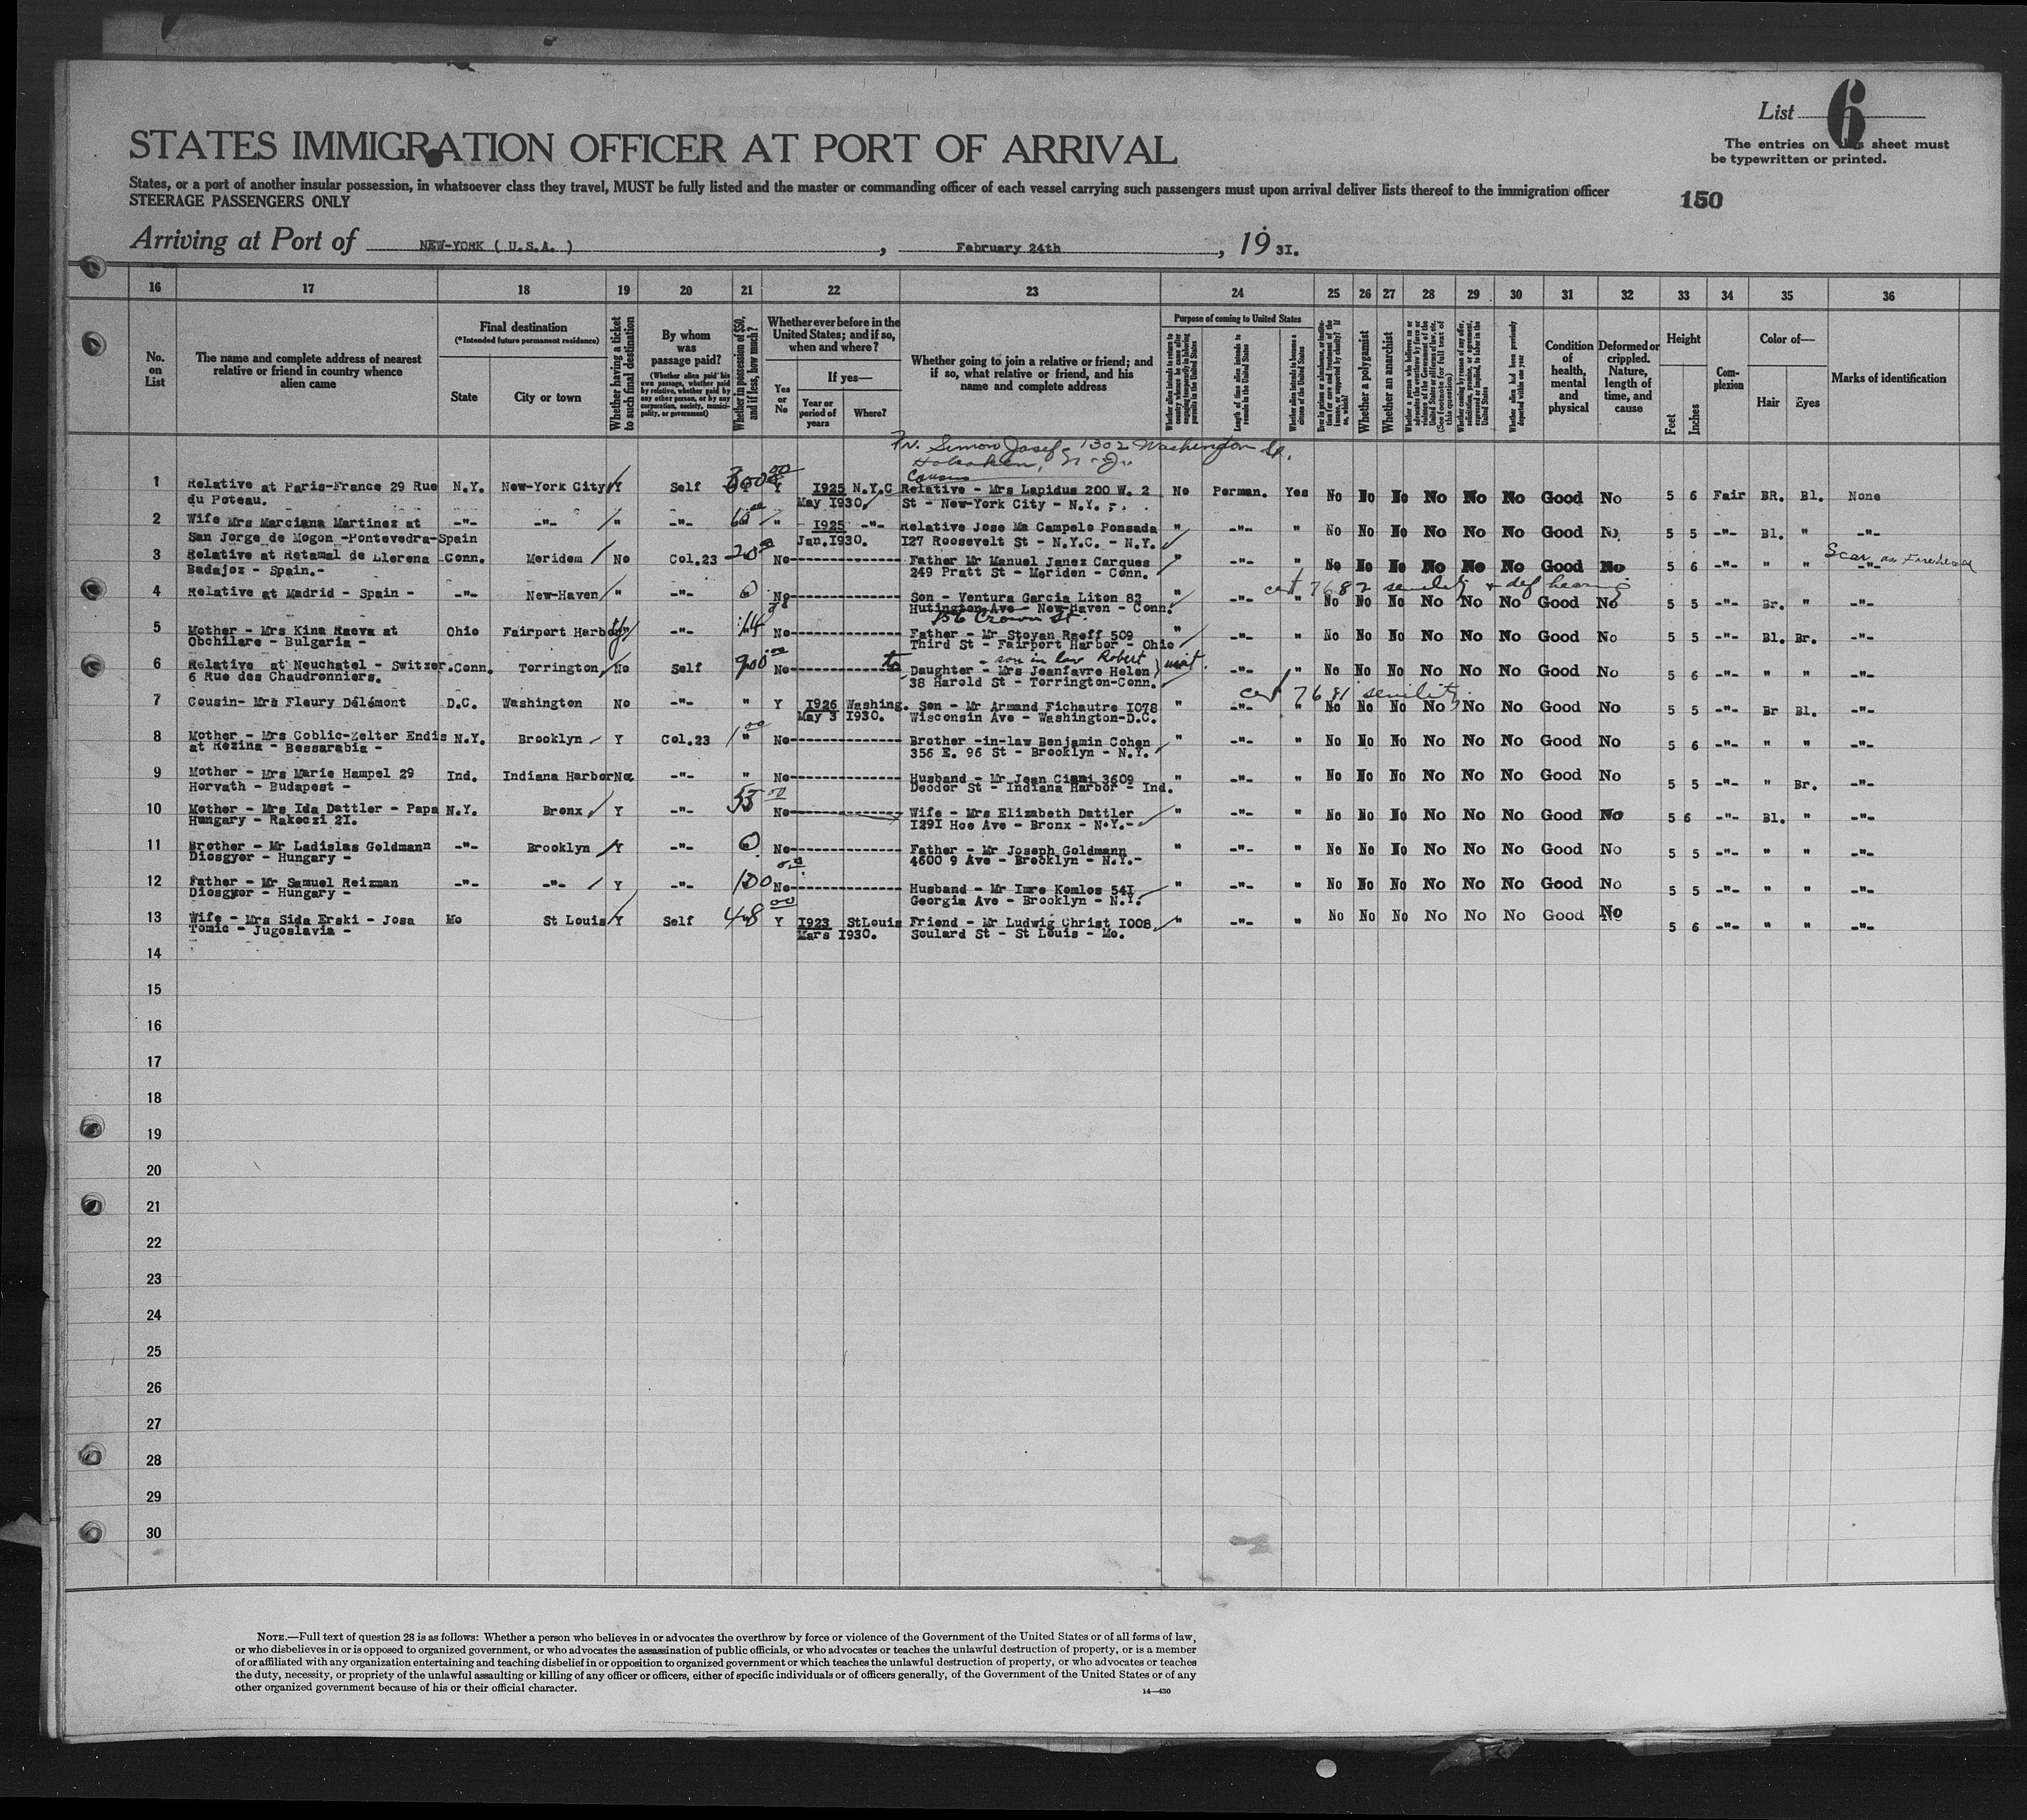 List 6
The entries on this sheet must
be typewritten or printed.
STATES IMMIGRATION OFFICER AT PORT OF ARRIVAL
States, or a port of another insular possession, in whatsoever class they travel, MUST be fully listed and the master or commanding officer of each vessel carrying such passengers must upon arrival deliver lists thereof to the immigration officer
STEERAGE PASSENGERS ONLY
150
Arriving at Port of NEW-YORK ( U.S.A. ), February 24th, 19 3I.
16 17 18 19 20 21 22 23 24 25 26 27 28 29 30 31 32 33 34 35 36
No. on List
The name and complete address of nearest relative or friend in country whence alien came
Final destination
(*Intended future permanent residence)
State
City or town
Whether having a ticket to such final destination
By whom was passage paid?
(Whether alien paid his own passage, whether paid by relative, whether paid by any other person, or by any corporation, society, municipality, or government)
Whether in possession of $50, and if less, how much?
Whether ever before in the United States; and if so, when and where?
Yes or No
If yes—
Year or period of years
Where?
Whether going to join a relative or friend; and if so, what relative or friend, and his name and complete address
Purpose of coming to United States
Whether alien intends to return to country whence he came after engaging temporarily in laboring pursuits in the United States
Length of time alien intends to remain in the United States
Whether alien intends to become a citizen of the United States
Whether a polygamist
Whether an anarchist
Whether alien had been previously deported within one year
Condition of health, mental and physical
Deformed or crippled. Nature, length of time, and cause
Height
Feet
Inches
Complexion
Color of—
Hair
Eyes
Marks of identification
Fr. Simon Josef - 1302 Washington St.
Hoboken, N. J.
Cousin
1 Relative at Paris-France 29 Rue N.Y. New-York City Y Self 300 00 Y I925 N.Y.C Relative - Mrs Lapidus 200 W. 2 No Perman. Yes No No No No No No Good No 5 6 Fair BR. Bl. None
du Poteau. May I930. St - New-York City - N.Y.
2 Wife Mrs Marciana Martinez at -"- -"- " -"- 60 00 " I925 -"- Relative Jose Ma Campelo Ponsada " -"- " No No No No No No Good No 5 5 -"- Bl. " -"-
San Jorge de Mogon -Pontevedra-Spain Jan.I930. I27 Roosevelt St - N.Y.C. - N.Y.
3 Relative at Retamal de Llerena Conn. Meridem No Col.23 20 No Father Mr Manuel Janez Carques " -"- " No No No No No No Good No 5 6 -"- " " -"- Scar on Forehead
Badajoz - Spain.- 249 Pratt St - Meriden - Conn.
cert 7682 senility & def hearing
4 Relative at Madrid - Spain - -"- New-Haven " -"- 0 No Son - Ventura Garcia Liton 82 " -"- " No No No No No No Good No 5 5 -"- Br. " -"-
Hutington Ave - New-Haven - Conn.
156 Crown St.
5 Mother - Mrs Kina Raeva at Ohio Fairport Harbor -"- 14 No Father - Mr Stoyan Raeff 509 " -"- " No No No No No No Good No 5 5 -"- Bl. Br. -"-
Obchilare - Bulgaria - Third St - Fairport Harbor - Ohio
- son in law Robert
6 Relative at Neuchatel - Switzer. Conn. Torrington No Self 900 00 No to Daughter - Mrs Jeanfavre Helen visit. -"- " No No No No No No Good No 5 6 -"- " " -"-
6 Rue des Chaudronniers. 38 Harold St - Torrington-Conn.
cert 7681 senility
7 Cousin- Mrs Fleury Délémont D.C. Washington No -"- " Y I926 Washing. Son - Mr Armand Fichautre I078 " -"- " No No No No No No Good No 5 5 -"- Br Bl. -"-
May 3 I930. Wisconsin Ave - Washington-D.C.
8 Mother - Mrs Coblic-Zelter Endis N.Y. Brooklyn Y Col.23 " No Brother -in-law Benjamin Cohen " -"- " No No No No No No Good No 5 6 -"- " " -"-
at Rezina - Bessarabia - 356 E. 96 St - Brooklyn - N.Y.
9 Mother - Mrs Marie Hampel 29 Ind. Indiana Harbor No -"- " No Husband - Mr Jean Ciani 3609 " -"- " No No No No No No Good No 5 5 -"- " Br. -"-
Horvath - Budapest - Deodor St - Indiana Harbor - Ind.
10 Mother - Mrs Ida Dattler - Papa N.Y. Bronx Y -"- 55 No Wife - Mrs Elizabeth Dattler " -"- " No No No No No No Good No 5 6 -"- Bl. " -"-
Hungary - Rakoczi 2I. I29I Hoe Ave - Bronx - N.Y.-
11 Brother - Mr Ladislas Goldmann -"- Brooklyn Y -"- 0 No Father - Mr Joseph Goldmann " -"- " No No No No No No Good No 5 5 -"- " " -"-
Diosgyor - Hungary - 4600 9 Ave - Brooklyn - N.Y.-
12 Father - Mr Samuel Reizman -"- -"- Y -"- 100 No Husband - Mr Imre Komlos 54I " -"- " No No No No No No Good No 5 5 -"- " " -"-
Diosgyor - Hungary - Georgia Ave - Brooklyn - N.Y.
13 Wife - Mrs Sida Erski - Josa Mo St Louis Y Self 48 00 Y I923 StLouis Friend - Mr Ludwig Christ I008 " -"- " No No No No No No Good No 5 6 -"- " " -"-
Tomic - Jugoslavia - Mars I930. Soulard St - St Louis - Mo.
14
15
16
17
18
19
20
21
22
23
24
25
26
27
28
29
30
NOTE.—Full text of question 28 is as follows: Whether a person who believes in or advocates the overthrow by force or violence of the Government of the United States or of all forms of law,
or who disbelieves in or is opposed to organized government, or who advocates the assassination of public officials, or who advocates or teaches the unlawful destruction of property, or is a member
of or affiliated with any organization entertaining and teaching disbelief in or opposition to organized government or which teaches the unlawful destruction of property, or who advocates or teaches
the duty, necessity, or propriety of the unlawful assaulting or killing of any officer or officers, either of specific individuals or of officers generally, of the Government of the United States or of any
other organized government because of his or their official character.
14—430